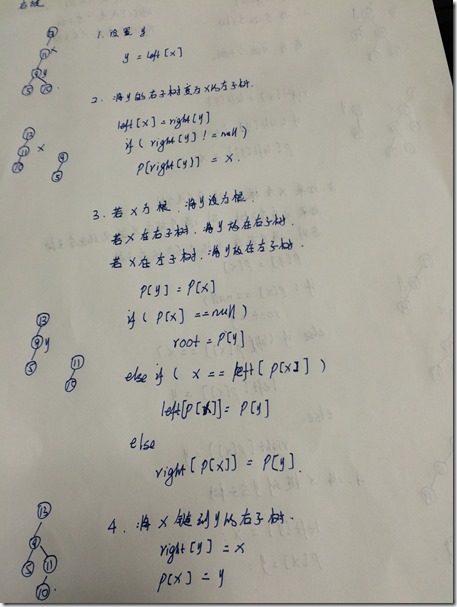 右旋
1. 设置 y
y = left[x]
2. 将y的右子树变为x的左子树.
left[x] = right[y]
if ( right[y] != null )
P[right[y]] = x.
3. 若 x 为根, 将y设为根.
若 x 在右子树, 将y放在右子树.
若 x 在左子树, 将y放在左子树.
P[y] = P[x]
if ( P[x] == null )
root = P[y]
else if ( x == left[ P[x] ] )
left[P[x]] = P[y]
else
right[P[x]] = P[y].
4. 将 x 链到y的右子树.
right[y] = x
P[x] = y
13
11 x
9 y
5 10
13
11 x
10
9
5
13
9 y
5
11
10
13
9
5 11
10